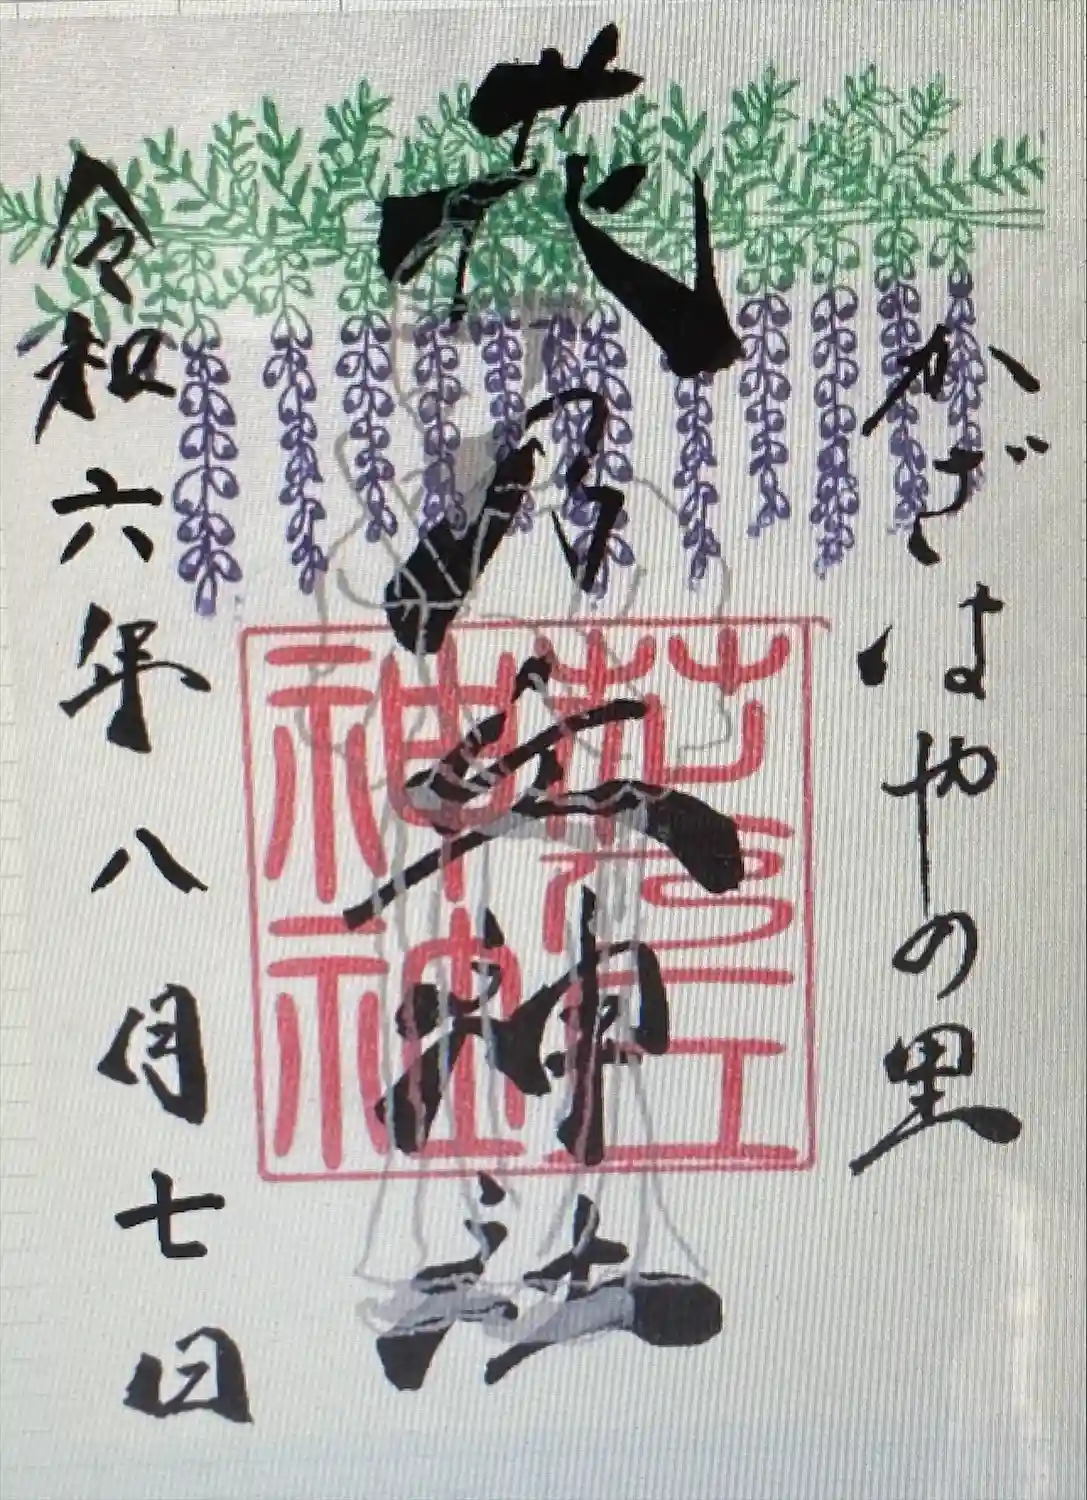 かざはやの里
花乃丘神社
花乃丘
神社
令和六年八月七日